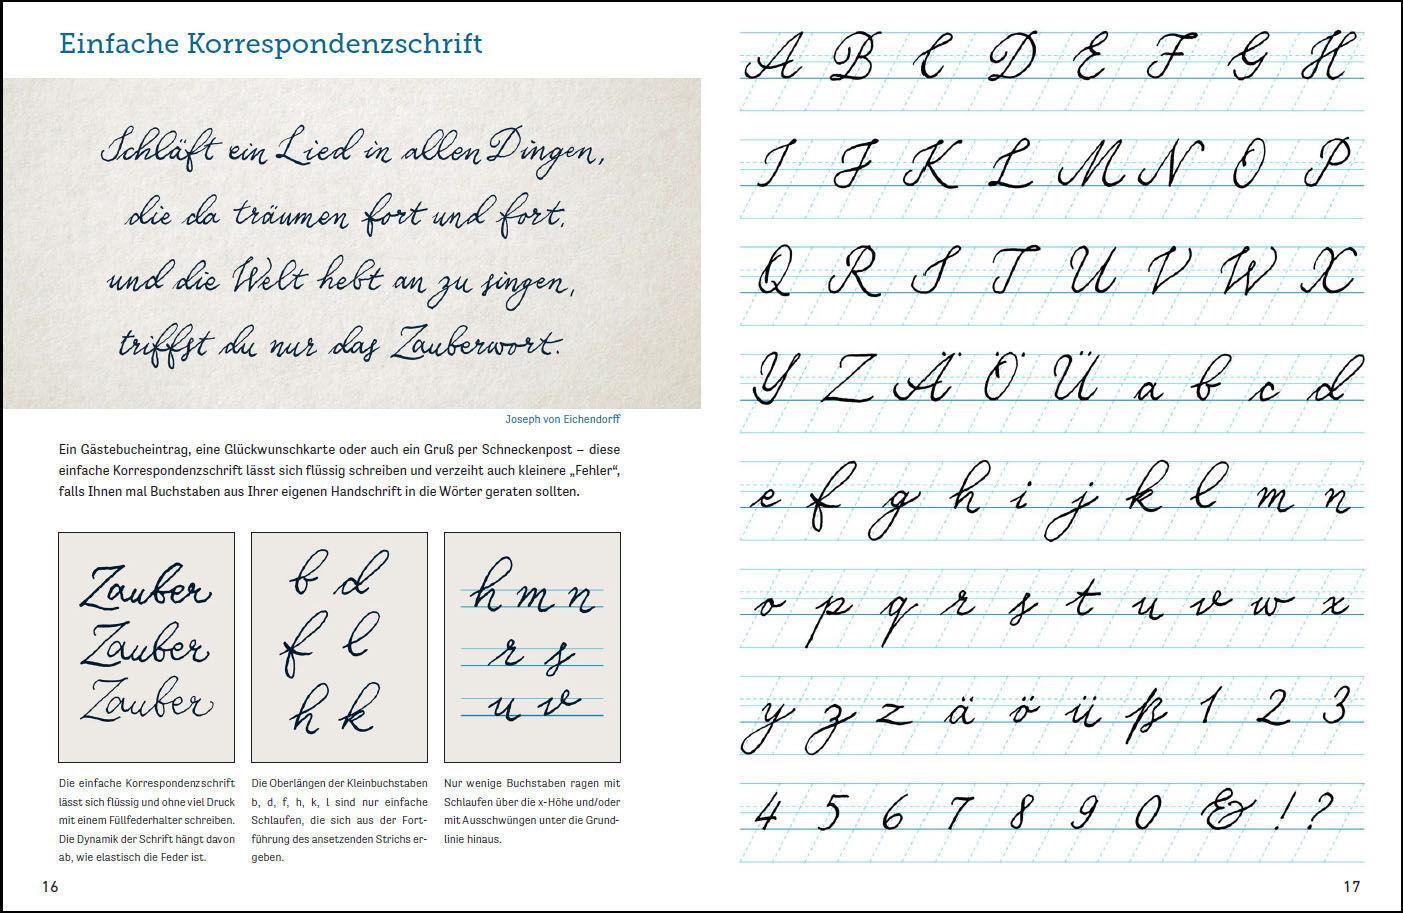 Einfache Korrespondenzschrift
Schläft ein Lied in allen Dingen,
die da träumen fort und fort,
und die Welt hebt an zu singen,
triffst du nur das Zauberwort.
Joseph von Eichendorff
Ein Gästebucheintrag, eine Glückwunschkarte oder auch ein Gruß per Schneckenpost – diese
einfache Korrespondenzschrift lässt sich flüssig schreiben und verzeiht auch kleinere „Fehler“,
falls Ihnen mal Buchstaben aus Ihrer eigenen Handschrift in die Wörter geraten sollten.
Zauber
Zauber
Zauber
Die einfache Korrespondenzschrift
lässt sich flüssig und ohne viel Druck
mit einem Füllfederhalter schreiben.
Die Dynamik der Schrift hängt davon
ab, wie elastisch die Feder ist.
b d
f l
h k
Die Oberlängen der Kleinbuchstaben
b, d, f, h, k, l sind nur einfache
Schlaufen, die sich aus der Fort-
führung des ansetzenden Strichs er-
geben.
h m n
r s
u v
Nur wenige Buchstaben ragen mit
Schlaufen über die x-Höhe und/oder
mit Ausschwüngen unter die Grund-
linie hinaus.
16
A B C D E F G H
I J K L M N O P
Q R S T U V W X
Y Z Ä Ö Ü a b c d
e f g h i j k l m n
o p q r s t u v w x
y z z ä ö ü ß 1 2 3
4 5 6 7 8 9 0 & ! ?
17